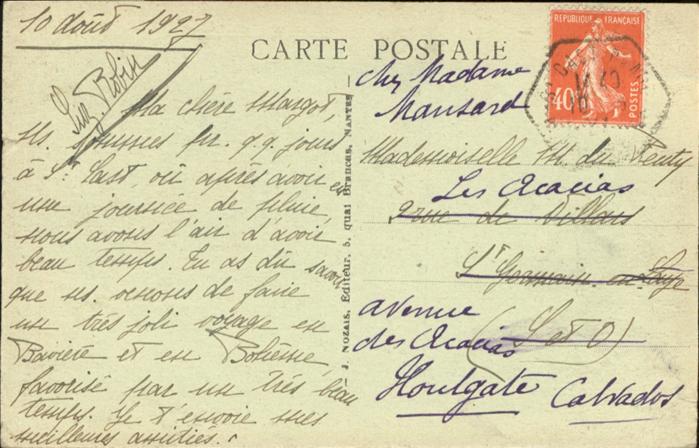 10 août 1927
CARTE POSTALE
REPUBLIQUE FRANÇAISE
40c
POSTES
Ma chère Margot,
Ns. sommes pr. q.q. jours
à St Cast, où après avoir eu
une journée de pluie,
nous avons l'air d'avoir
beau temps. Tu as dû savoir
que ns. venons de faire
un très joli voyage en
Bavière et en Bohème,
favorisé par un très beau
temps. Je t'envoie mes
meilleures amitiés.
Robin
J. NOZAIS, Editeur, 5, quai Brancas, NANTES
chez Madame
Mansard
Mademoiselle M. du
Les Acacias
2 rue de Villars
St Germain en Laye
(S et O)
avenue
des Acacias
Houlgate Calvados